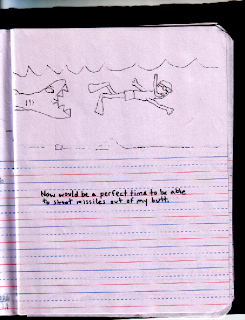 Now would be a perfect time to be able
to shoot missiles out of my butt.